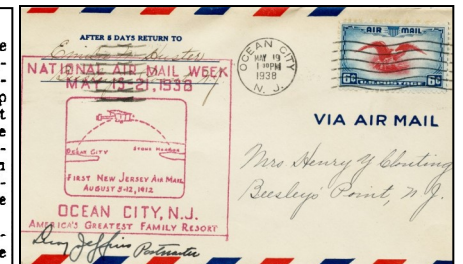 AFTER 5 DAYS RETURN TO
NATIONAL AIR MAIL WEEK
MAY 15-21, 1938
OCEAN CITY
STONE HARBOR
FIRST NEW JERSEY AIR MAIL
AUGUST 3-12, 1912
OCEAN CITY, N.J.
AMERICA'S GREATEST FAMILY RESORT
Postmaster
OCEAN CITY
MAY 19
1 PM
1938
N. J.
AIR MAIL
6¢ U.S. POSTAGE 6¢
VIA AIR MAIL
Mrs Henry Y Clouting
Beesley's Point, N.J.